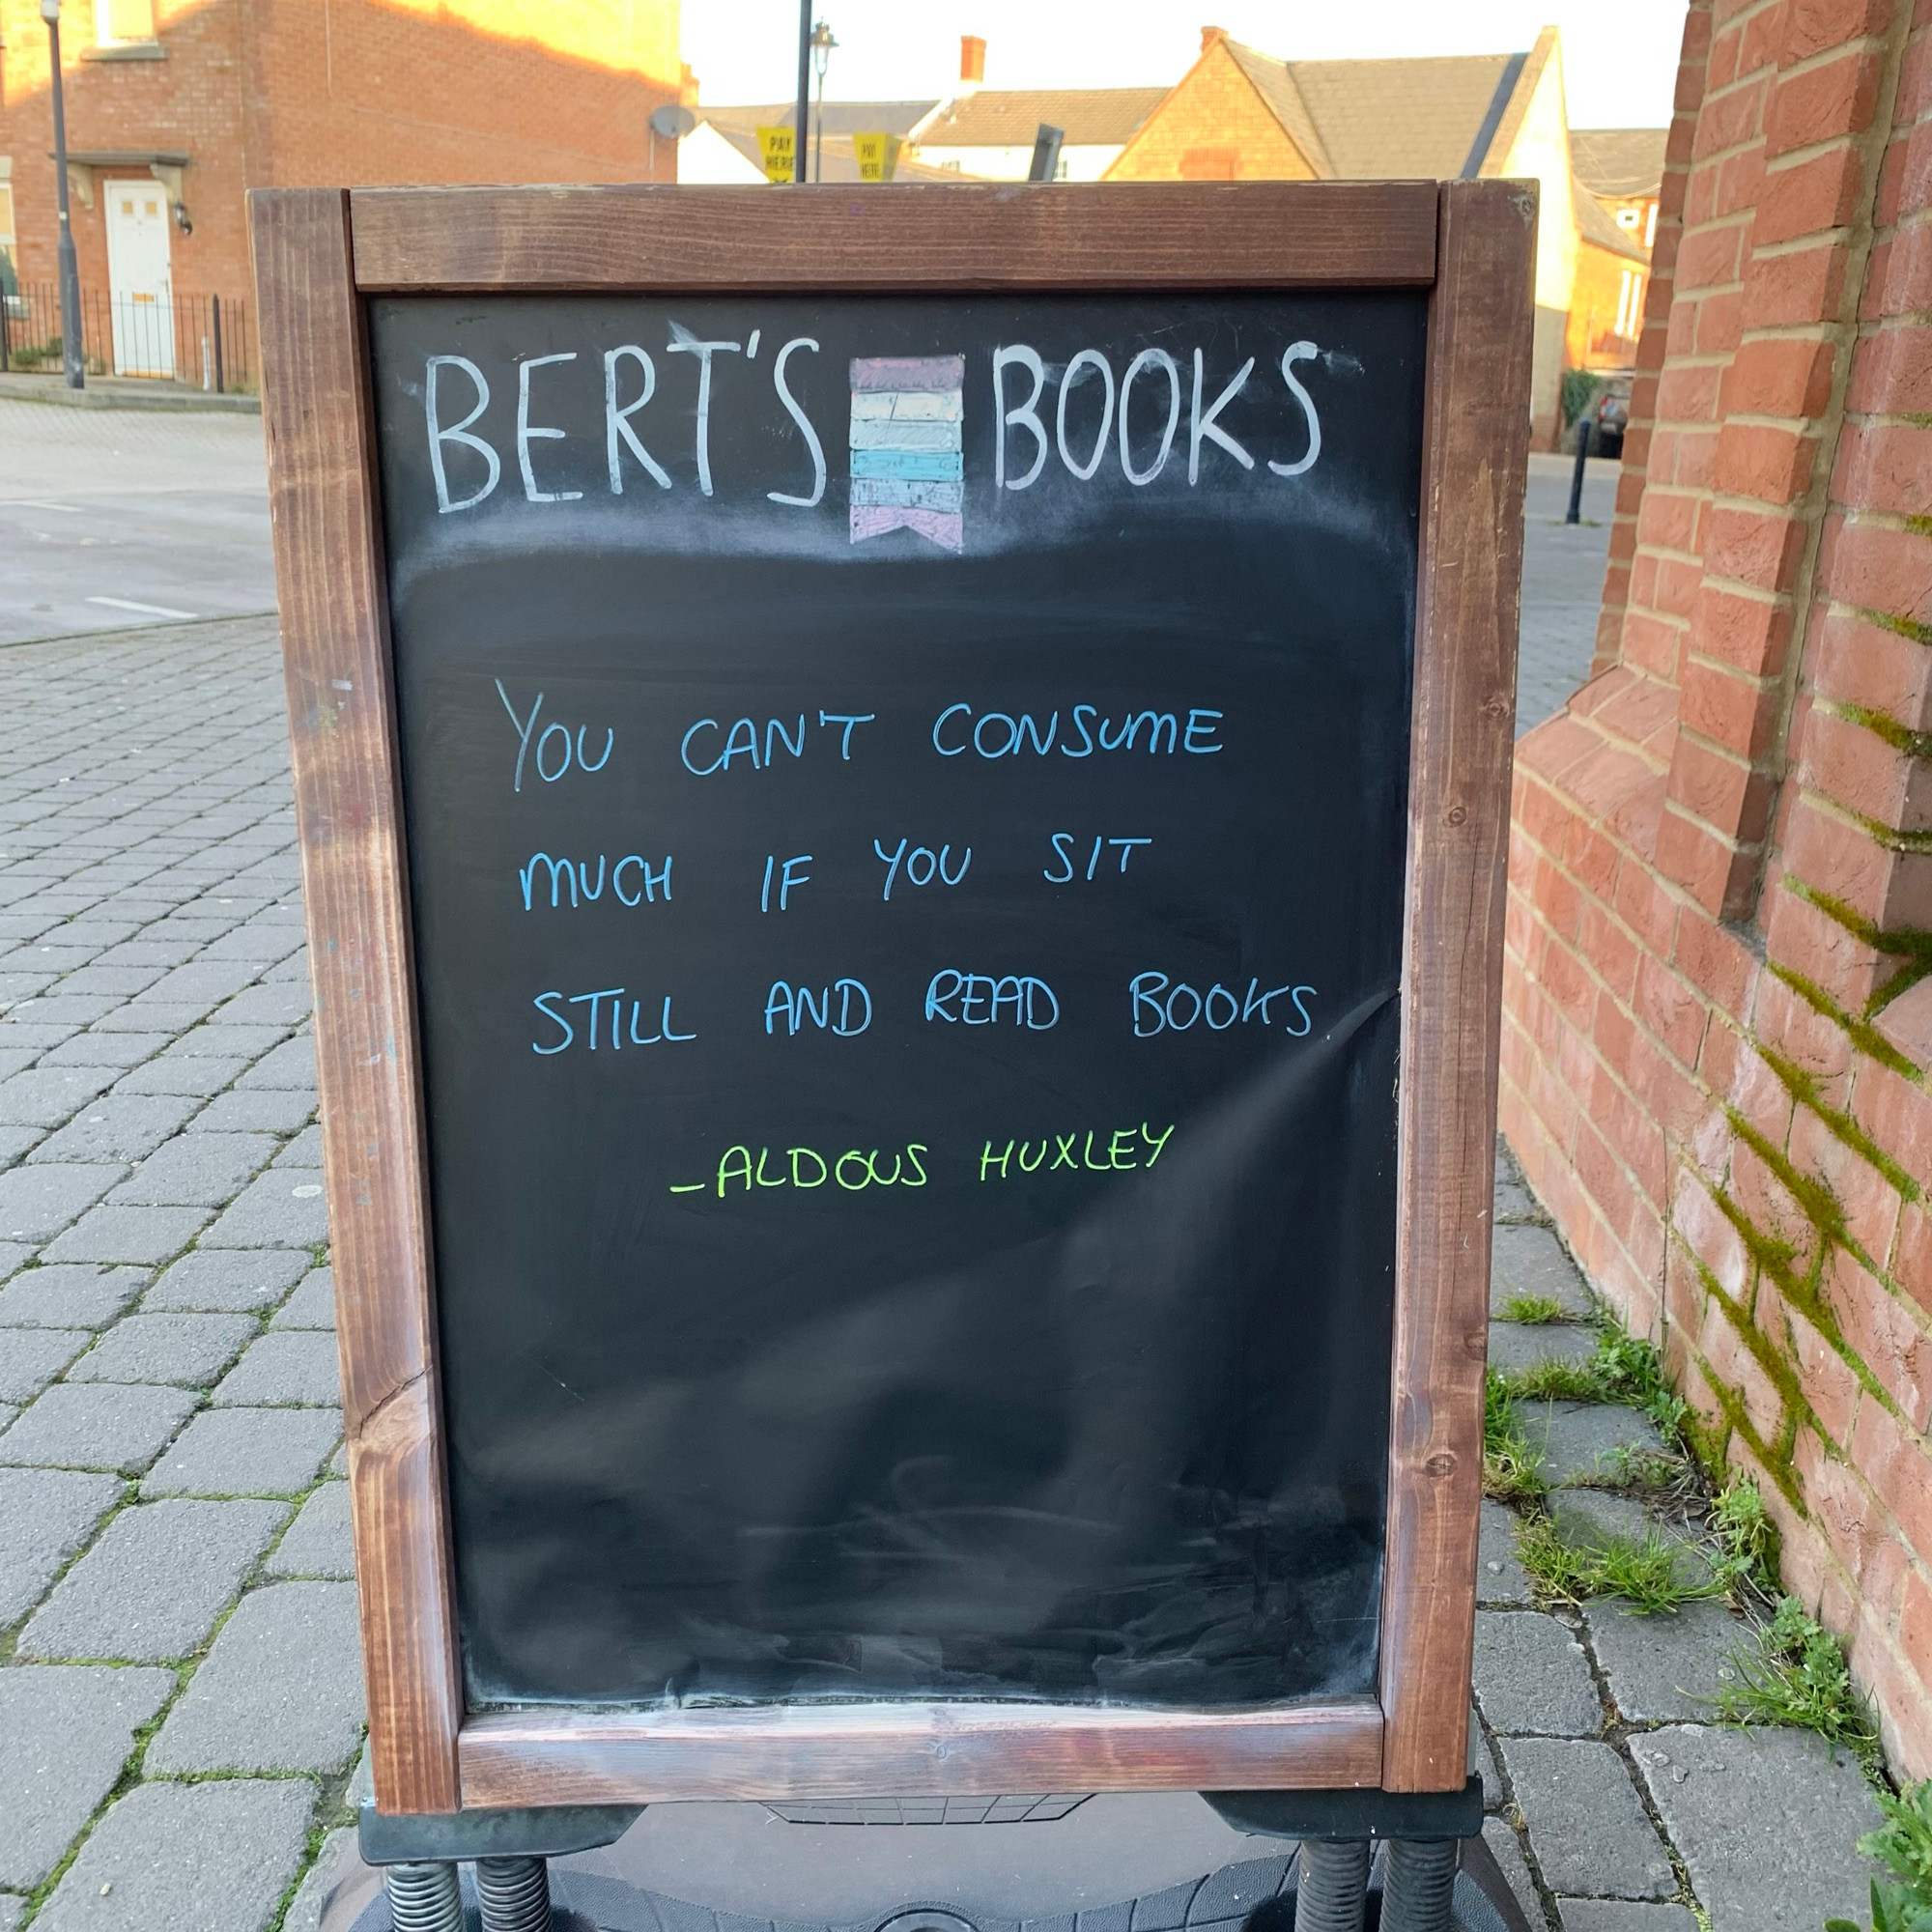 PAY
HERE
PAY
HERE
BERT'S BOOKS
YOU CAN'T CONSUME
MUCH IF YOU SIT
STILL AND READ BOOKS.
-ALDOUS HUXLEY